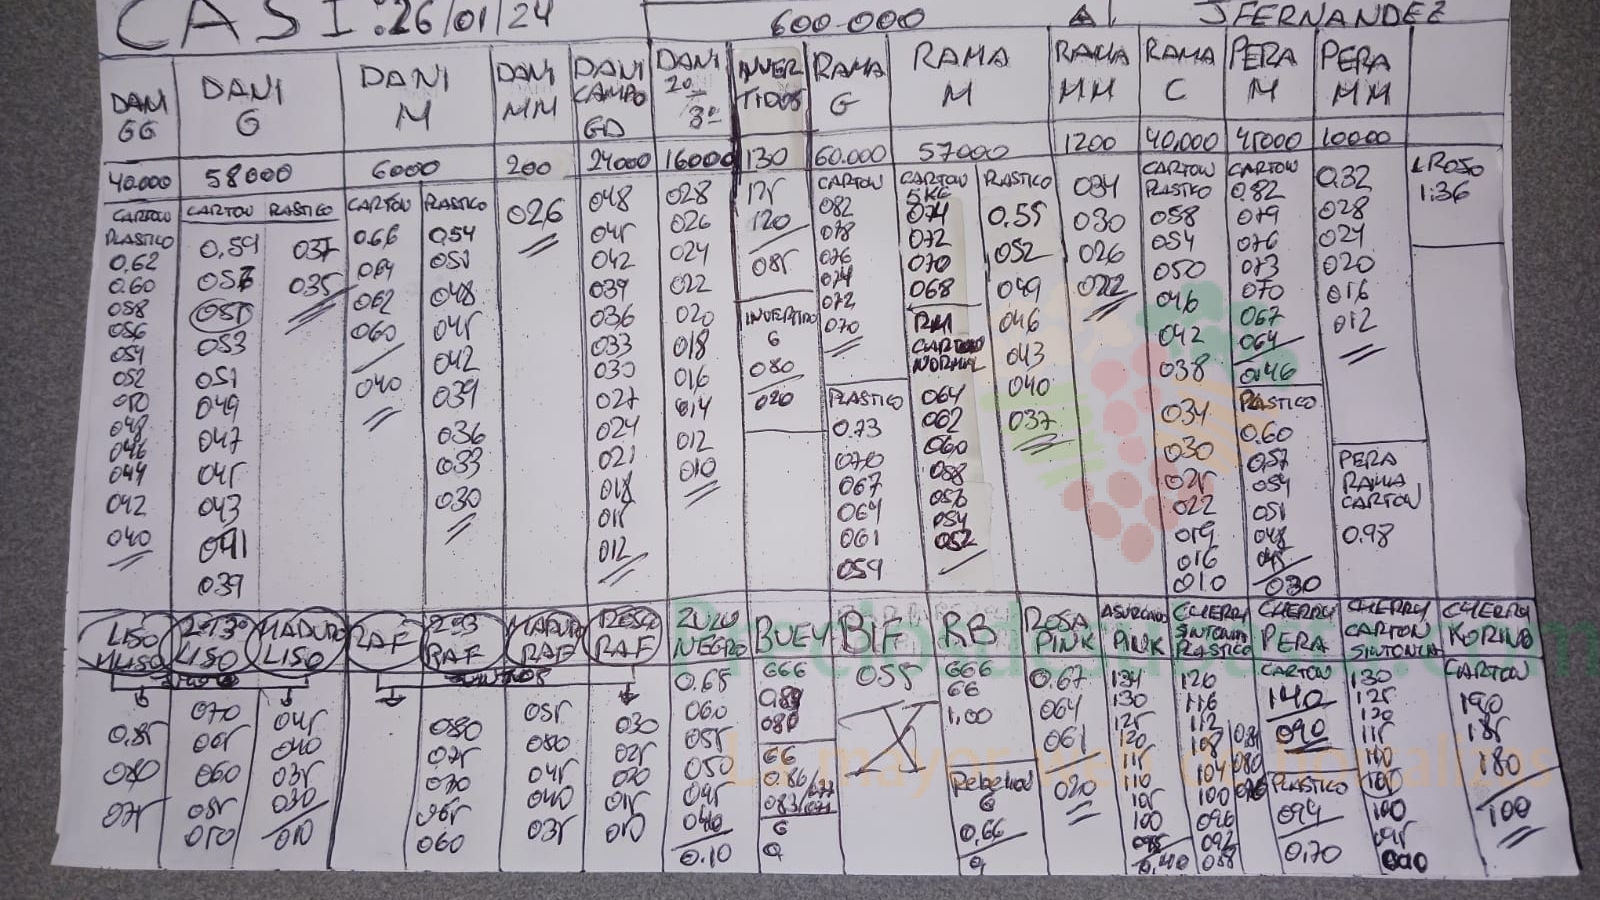 CASI: 26/01/24
600.000
A1
JFERNANDEZ
DANI GG
40.000
CARTON
PLASTICO
0.62
0.60
058
056
054
052
050
048
046
044
042
040
DANI G
58000
CARTON
0.59
057
055
053
051
049
047
045
043
041
039
PLASTICO
037
035
DANI M
6000
CARTON
0.66
064
062
060
040
PLASTICO
0.54
051
048
045
042
039
036
033
030
DANI MM
200
026
DANI CAMPO GD
24000
048
045
042
039
036
033
030
027
024
021
018
015
012
DANI 2º 3º
16000
028
026
024
022
020
018
016
014
012
010
INVERTIDOS
130
125
120
085
INVERTIDO
G
080
020
RAMA G
60.000
CARTON
082
078
076
074
072
070
PLASTICO
0.73
070
067
064
061
059
RAMA M
57000
CARTON
5KG
074
072
070
068
RM
CARTON
NORMAL
064
062
060
058
056
054
052
PLASTICO
0.55
052
049
046
043
040
037
RAMA MM
1200
034
030
026
022
RAMA C
40.000
CARTON
PLASTICO
058
054
050
046
042
038
034
030
025
022
019
016
010
PERA M
45000
CARTON
0.82
079
076
073
070
067
064
046
PLASTICO
0.60
0.57
054
051
048
045
030
PERA MM
10000
0.32
028
024
020
016
012
PERA
RAMA
CARTON
0.98
L ROSO
1:36
LISO
085
080
075
2º3º
LISO
070
065
060
055
050
MADURO
LISO
045
040
035
030
010
RAF
JUNTOS
2º3
RAF
080
075
070
065
060
MADURO
RAF
055
050
045
040
035
DESC
RAF
030
025
020
015
010
ZULU
NEGRO
0.65
060
055
050
045
040
0.10
BUEY
666
085
080
66
0.86/077
083/071
G
BIF
055
X
RB
666
66
1.00
Rebelion
G
0.66
ROSA
PINK
0.67
064
061
020
ASURCADO
PINK
134
130
125
120
115
110
105
100
095
0.40
CHERRY
SINTONIA
PLASTICO
120
116
112
108
104
100
096
092
088
084
080
076
CHERRY
PERA
CARTON
140
090
PLASTICO
094
0.70
CHERRY
CARTON
SINTONIA
130
125
120
115
100
105
100
095
090
CHERRY
KORINO
CARTON
190
185
180
100
Preciodesubastas.com
La mayor web de hortalizas